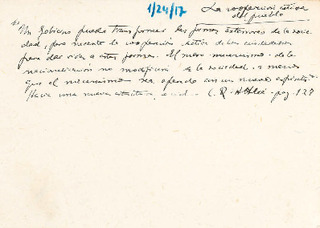 1/24/17
La cooperación activa
del pueblo
"Un Gobierno puede transformar las formas exteriores de la socie-
dad, pero necesita de cooperación activa de los ciudadanos
para dar vida a estas formas. El mero mecanismo de la
nacionalización no modificará a la sociedad, a menos
que el mecanismo sea operado con un nuevo espíritu".
Hacia una nueva - C. R. Attlee - pag. 127